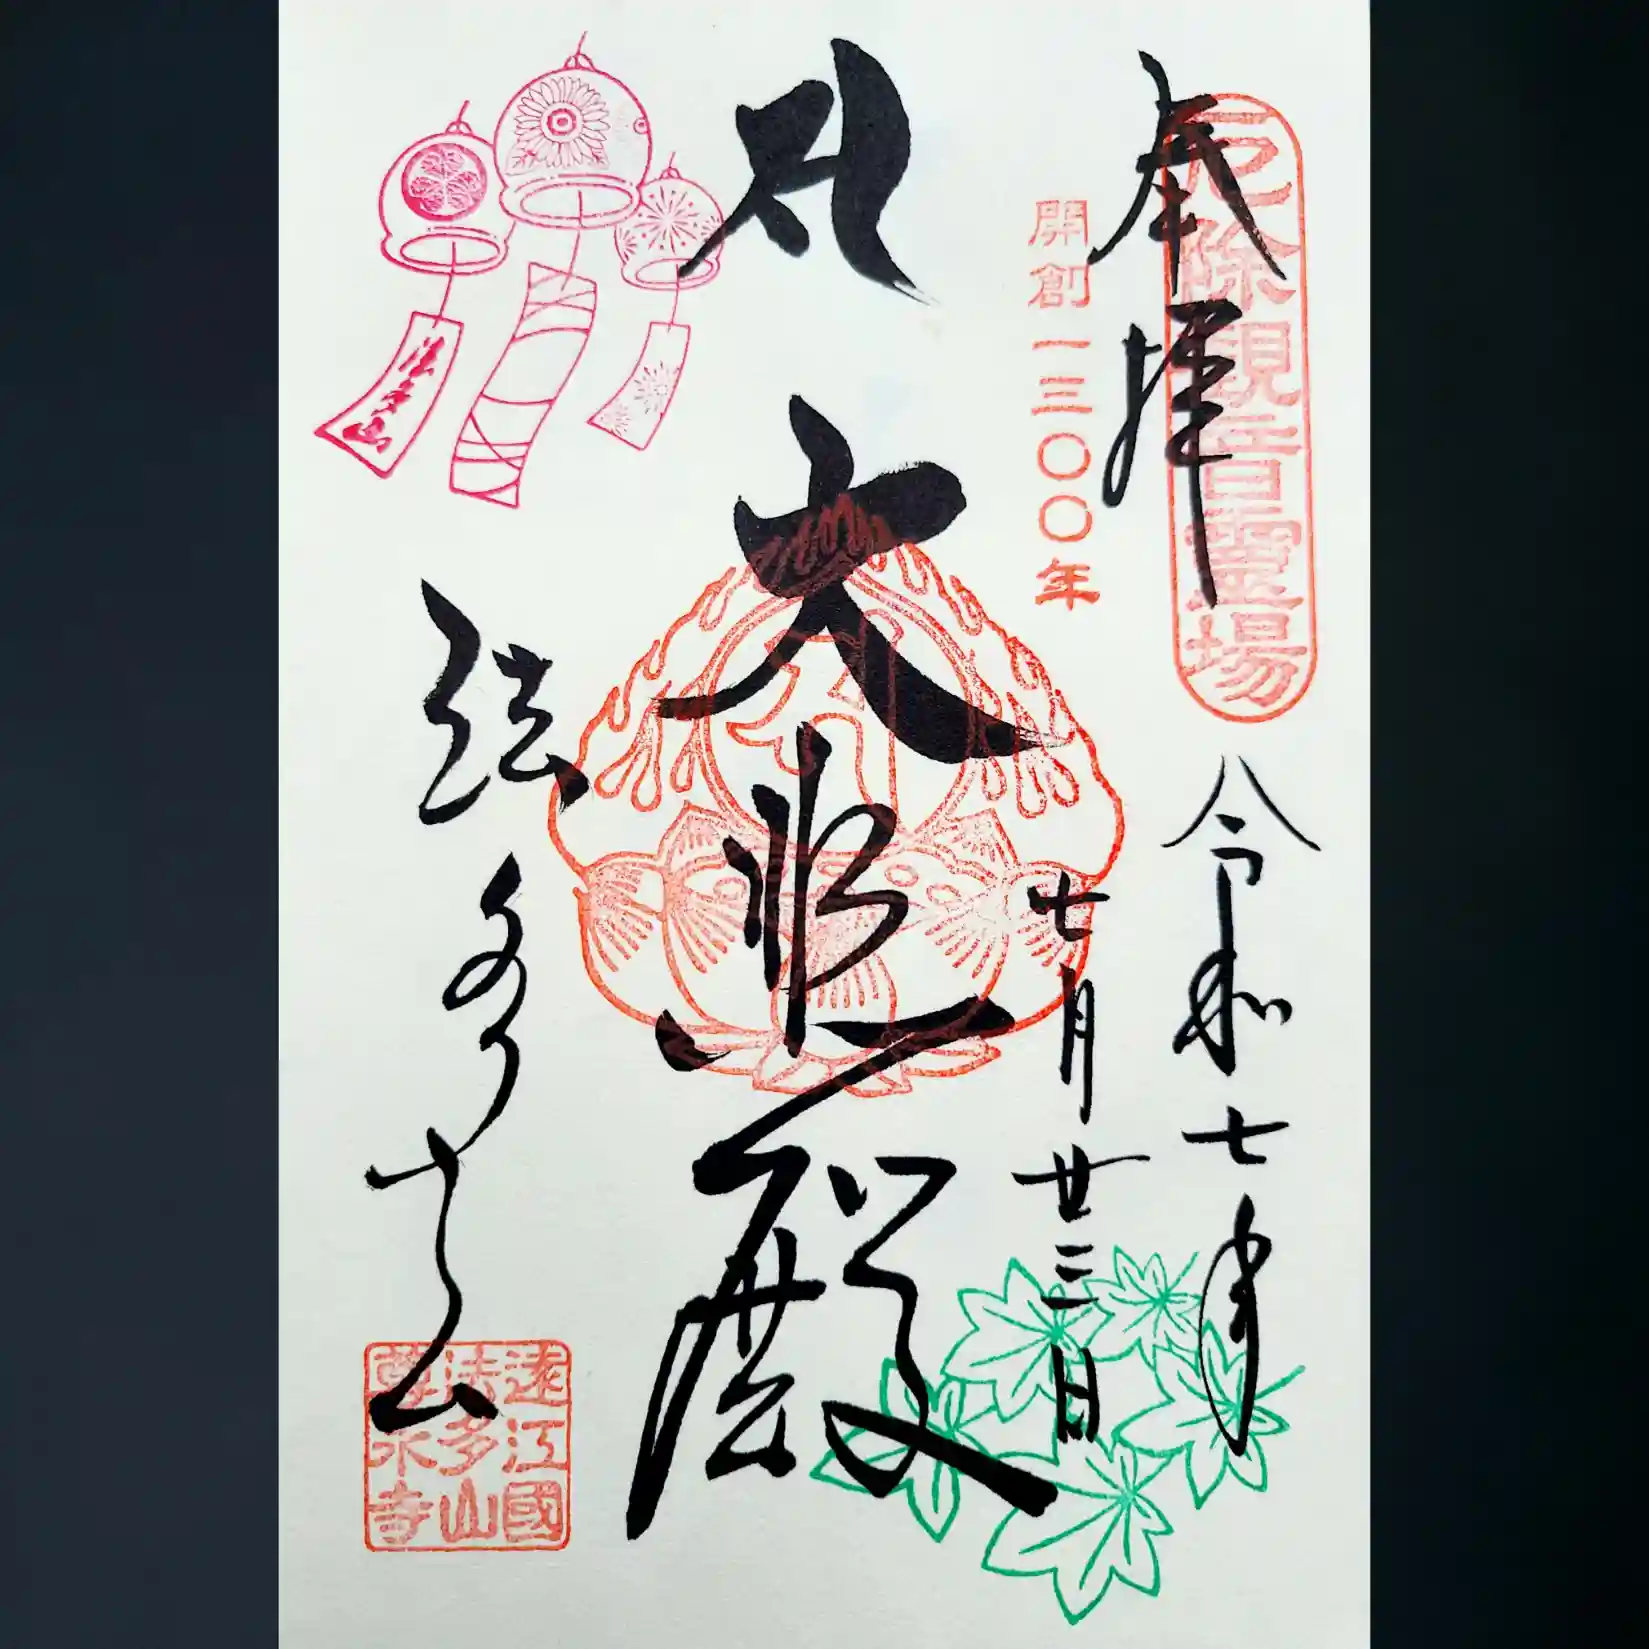 奉拝
厄除観音霊場
開創一三〇〇年
令和七年
七月廿三日
大悲殿
法多山
法多山
遠江國
法多山
尊永寺